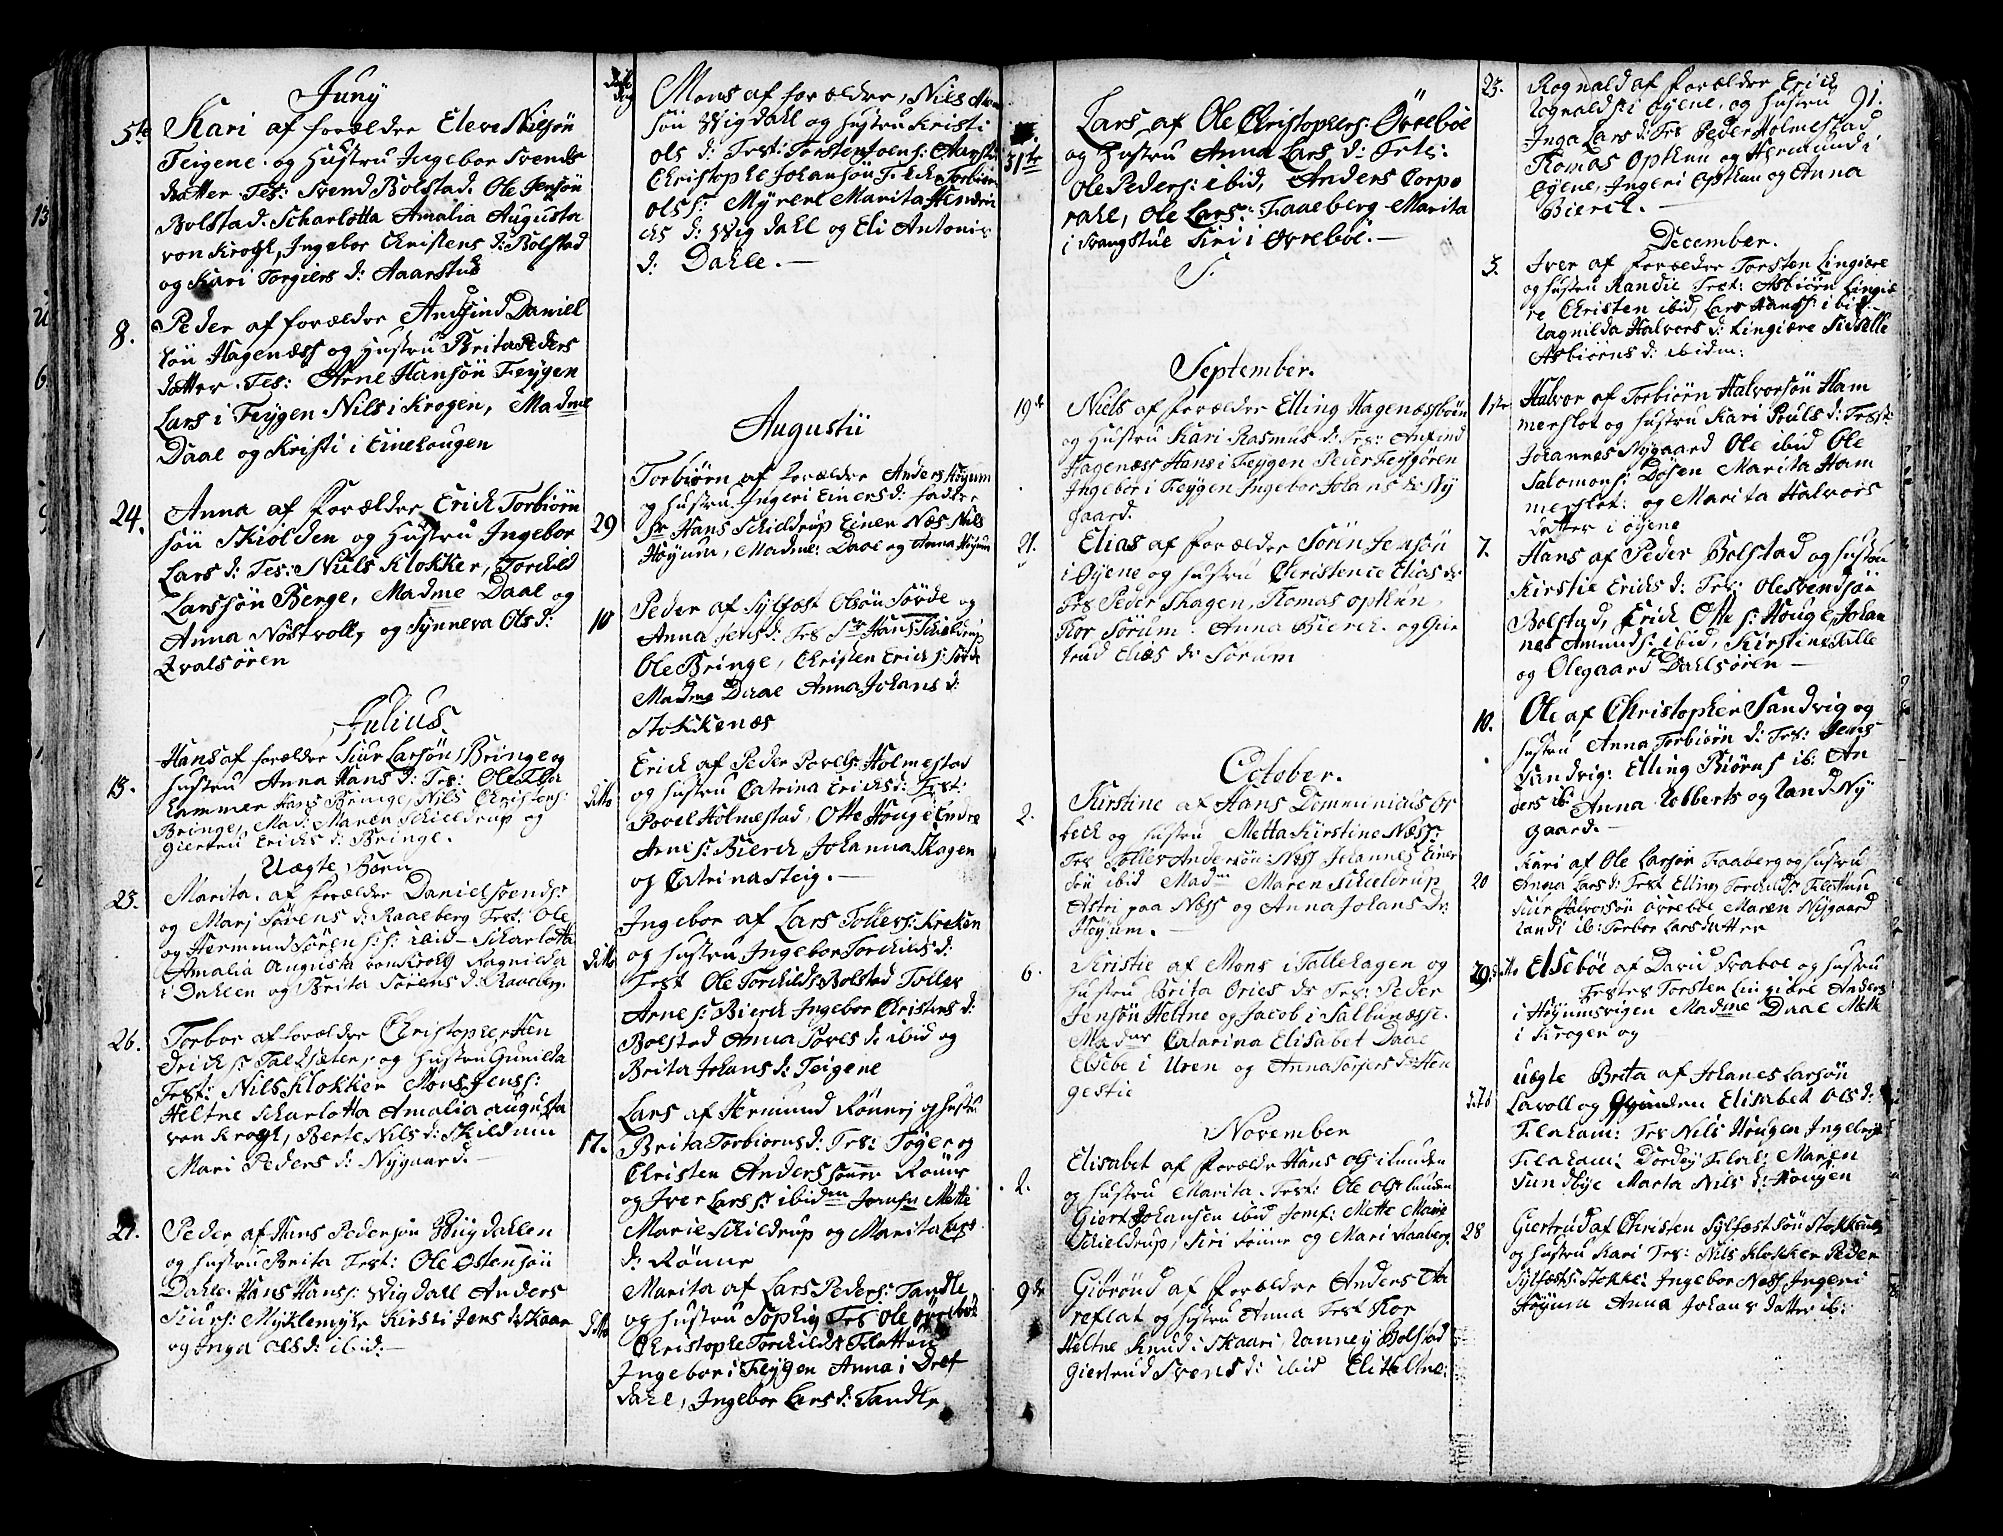 Juny
5te Kari af forældre Eleve Nilsøn
Feigene og Hustru Ingebor Svends
datter. Tes: Svend Bolstad. Ole Jensøn
Bolstad. Scharlotta Amalia Augusta
von Krogh, Ingebor Christens d: Bolstad
og Kari Torgiers d: Aaarstud
8. Peder af forældre Andfind Daniel
søn Hagenæss og Hustru Brita Peders
datter. Tes: Arne Hansøn Feygen
Lars i Feygen Nils i Krogen, Madme
Daae og Kristi i Einehougen
24. Anna af forældre Erick Torbiørn
søn Skiolden og Hustru Ingebor
Lars d: Tes: Niels Klokker, Torkild
Larssøn Berge, Madme Daae og
Anna Nostvoll, og Synneva Ols d:
Qvalsøren
Julius.
13. Hans af forældre Siur Larsøn Bringe og
hustru Anna Hans d: Tes: Ole
Lammer Hans Bringe, Nils Christens:
Bringe, Mad: Maren Schieldrup og
Giertru Ericks d: Bringe.
Uægte Børn
23. Marita af forældre Daniel Svends:
og Mari Sørens d: Raaeberg Test: Ole
og Hermund Sørens s: ibid Scharlotta
Amalia Augusta von Krogh Ragnilda
i Dahlen og Brita Sørens d: Raaeberg.
26. Torbor af forældre Christopher Hen
drick s: Talksæter, og hustru Gunilda
Test: Nils Klokker Mons Jens s:
Heltne Scharlotta Amalia Augusta
von Krogh, Berte Nils d: Skildum
Mari Peders d: Nygaard.
27. Peder af Hans Pedersøn Vigdahlen
og hustru Brita Test: Ole Ostensøn
Dahle. Hans Hans s: Vigdall Anders
Siurs: Myklemyhr Kirsti Jens d: Skaar
og Inga Ols d: ibid.
Mons af forældre, Nils
søn Vigdahl og Hustru Kristi
Ols d: Test: Torsten Joens: Aarstu
Christophe Johansøn
Ols s: Myrene Marita Hendri
cks d: Vigdahl og Eli Antonis
d: Dahle.
Augustii
29 Torbiørn af forældre Anders Høyum
og hustru Ingeri Einers d: fadde
Sr Hans Schieldrup Einer Næs Nils
Høyum, Madme: Daae og Anna Høyum
10 Peder af Sylfæst Olsøn Sørde og
Anna Jens d: Tes Sr Hans Schieldrup
Ole Bringe, Christen Erick s: Sørde
Madme Daae Anna Johans d:
Stokkenæs
ditto Erick af Peder Povels: Holmestad
og hustru Catrina Ericks d: Test:
Povel Holmestad, Otte Houge Endre
Arnes: Bierck, Johanna Skagen
og Catrina Steig.
ditto Ingebor af Lars Tollers: Kreken
og hustru Ingebor Torchilds d:
Test Ole Torchilds: Bolstad Toller
Arne s: Bierck Ingebor Christens d:
Bolstad Anna Povels d: ibid og
Brita Johans d: Teigene
17. Lars af Hermund Rønnei og hustru
Brita Torbiorns d: Tes: Toger og
Christen Anderssønner Rønne
og Iver Lars s: ibidm Jomfru Mette
Marie Schieldrup og Marita Lars
d: Rønne
ditto Marita af Lars Peders: Tandle
og hustru Sophiy Tes Ole Øvrebøe
Christophe Torchilds Flattun
Ingebor i Feygen Anna i Dref
dahl, Ingebor Lars d: Tandle,
31te Lars af Ole Christophers: Øvrebøe
og Hustru Anna Lars d: Tets:
Ole Peders: ibid, Anders Corpo
rahl, Ole Lars: Faaeberg Marita
i Svangstue Siri i Øvreboe.
S.
September.
19de Niels af forældre Elling Hagenæssbøen
og Hustru Kari Rasmus d: Tes: Anfind
Hagenæss Hans i Feygen Peder Feygøren
Ingebor i Feygen Ingebor Johans dr Ny
gaard.
21. Elias af forældre Sørin Jensøn
i Øyene og hustru Christence Elias dr
Tes Peder Skagen, Tomas optkun,
Tor Sorum. Anna Bierck. og Gier
trud Elias dr Sorum
October.
2. Kirstine af Hans Domminicus Or
beck og hustru Metta Kirstine Næss:
Tes Toller Andersøn: Næss Johannes Einer
søn ibid Madm Maren Schieldrup
Astri paa Næss og Anna Johans dr
Høyum.
6. Kristie af Mons i Tallehagen og
hustru Brita Ories dr Tes: Peder
Jensøn Heltne og Jacob i Salbunæsse.
Madme Catarina Elisabet Daae
Elsebe i Uren og Anna Torjers d: Hen
gestie
November
2. Elisabet af forældre Hans Ols i Lunden
og hustru Marita. Test: Ole Ols Lunden
Giert Johansen ibid Jomf: Mette Marie
Schieldrup, Siri Rønne og Mari Raaberg.
9de Giørond af forældre Anders Aa
reflat og hustru Anna Test Tor
Heltne Knud i Skaari, Ranney Bolstad
Giertrud Svens d: ibid Eli Heltne:
91.
23. Rognald af forældre Erick
Rognalds i Øyene, og hustru
Inga Lars d: Tes Peder Holmestad
Tomas Optkun og Hermund i
Øyene, Ingeri Optkun og Anna
Bierck.
December.
3. Iver af forældre Torsten Lingiære
og hustru Randie Test: Asbiørn Lingiæ
re Christen ibid, Lars Hans s: ibid
Ragnilda Halvors d: Lingiære Sidselle
Asbiørns d: ibidm:
Halvor af Torbiørn Halvorsøn Ham
merslot og hustru Kari Pouls d: Test:
Johannes Nygaard Ole ibid Ole
Salomons: Døsen Marita Ham
merslot: og Marita Halvors
datter i øyene
7. Hans af Peder Bolstad og hustru
Kirstie Ericks d: Tes: Ole Svendsøn
Bolstad, Erick Oste s: Houge, Johan
nes Amunds: ibid, Kirstine Falle
og Olegaard Dahlsøren
10. Ole af Christopher Sandvig og
hustru Anna Torbiørn d: Tes: Jens
Sandvig: Elling Biørns ib: An
ders ib: Anna Robberts og Rand Ny
gaard.
20 Kari af Ole Larsøn Faaberg og hustru
Anna Lars d: Test Elling Torchilds Flattun
Siur Halvorsøn Øvrebøe Maren Nygaard
Randi ib: Torbor Larsdatter
29. Elsebøe af David Svaboe og hustru
Testes Torsten Lingiære Anders
i Høyumsvigen Madme Daae Mette
i Krogen og
dito uægte Brita af Johanes Larsøn
Lavoll og Elisabet Ols d:
Flaham: Tes Nils Hougen Ingebrigt
Flaham: Dordey Flah: Maren
Sundbye Marta Nils d: Hougen
28 Giertrud af Christen Sylfæstsøn Stokkenæs
og hustru Kari Tes: Nils Klokker Peder
Sylfæsts: Stokke: Ingebor Næss, Ingeri
Høyum Anna Johans datter ib: